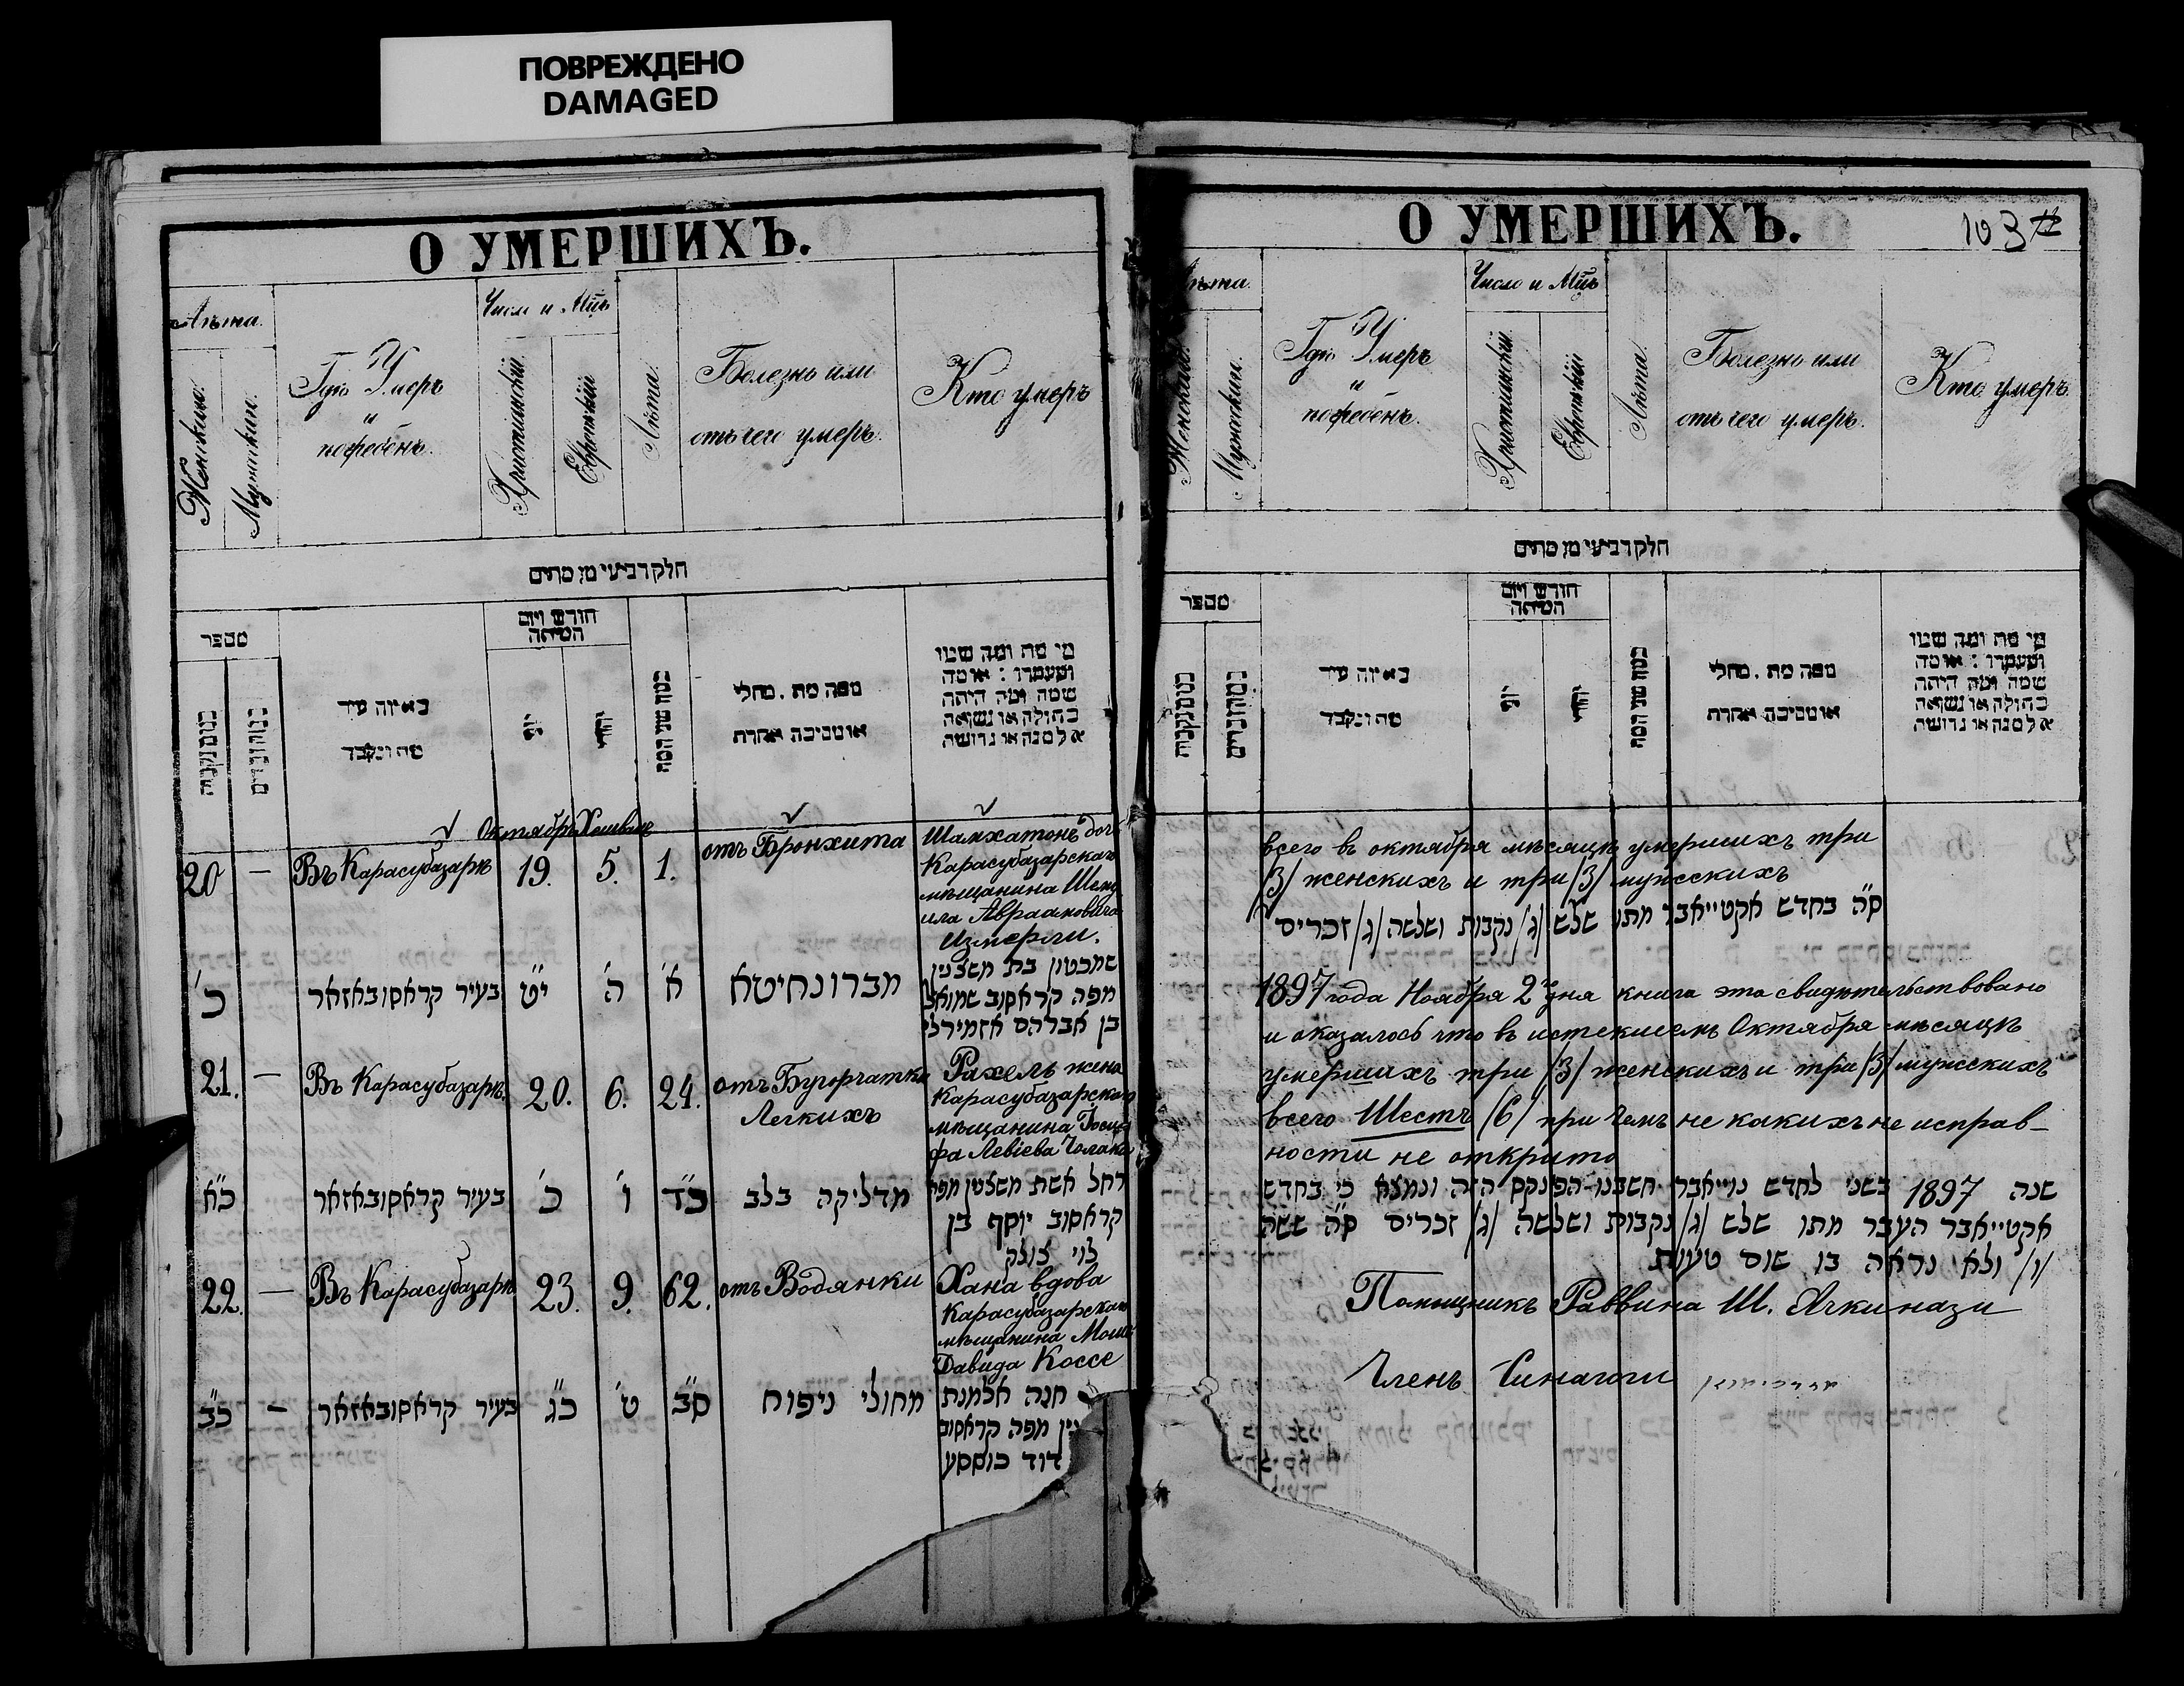 ПОВРЕЖДЕНО
DAMAGED
О УМЕРШИХЪ.
Лѣта.
Женскихъ.
Мужскихъ.
Гдѣ Умеръ
и
погребенъ.
Число и Мцъ
Христіанскій.
Еврейскій
Лѣта.
Болезнь или
отъ чего умеръ.
Кто умеръ
חלק רביעי מן מתים
מספר
באיזה עיר
מת ונקבר
חודש ויום
המיתה
ממה מת . מחלי
או מסיבה אחרת
מי מת ומה שמו
ומעמדו : או מה
שמה ומה היתה
בתולה או נשואה
אלמנה או גרושה
Октябрь Хешванъ
20 — Въ Карасубазарѣ 19. 5. 1. отъ Бронхита Шамхатонъ дочь
Карасубазарскаго
мѣщанина
Авраамовича
Измерли.
כ' בעיר קראסובאזאר י"ט ה' א' מברונחיטא שמחטון בת משצנין
מפה קראסוב שמואל
בן אברהם אזמירלי
21. — Въ Карасубазарѣ. 20. 6. 24. отъ Бугорчатки Рахель жена
Легкихъ Карасубазарскаго
мѣщанина Іоси
фа Левіева Чолака
כ"א בעיר קראסובאזאר כ' ו' כ"ד מדליקה בלב רחל אשת משצנין מפה
קראסוב יוסף בן
לוי צולק
22. — Въ Карасубазарѣ 23. 9. 62. отъ Водянки Хана вдова
Карасубазарскаго
мѣщанина Моше
Давида Коссе
כ"ב — בעיר קראסובאזאר כ"ג ט' ס"ב מחולי ניפוח חנה אלמנת
נין מפה קראסוב
דוד כוססע
О УМЕРШИХЪ.
103
Женскихъ.
Мужскихъ.
Гдѣ Умеръ
и
погребенъ.
Число и Мцъ
Христіанскій
Еврейскій
Лѣта.
Болезнь или
отъ чего умеръ.
Кто умеръ.
חלק רביעי מן מתים
מספר
באיזה עיר
מת ונקבר
חודש ויום
המיתה
ממה מת . מחלי
או מסיבה אחרת
מי מת ומה שמו
ומעמדו : או מה
שמה ומה היתה
בתולה או נשואה
אלמנה או גרושה
всего въ октября мѣсяцѣ умершихъ три
/3/ женскихъ и три /3/ мужскихъ
ס"ה בחדש אקטייאבר מתו שלש /ג/ נקבות ושלשה /ג/ זכרים
1897 года Ноября 2го дня книга эта свидѣтельствовано
и оказалось что въ истекшемъ Октября мѣсяцѣ
умершихъ три /3/ женскихъ и три /3/ мужскихъ
всего Шесть /6/ при чемъ не какихъ не исправ-
ности не открыто
שנה 1897 בשני לחדש נוייאבר חשבנו הפינקס הזה ונמצא כי בחדש
אקטייאבר העבר מתו שלש /ג/ נקבות ושלשה /ג/ זכרים ס"ה ששה
/ו/ ולא נראה בו שום טעות
Помощникъ Раввина Ш. Ачкинази
Членъ Синагоги